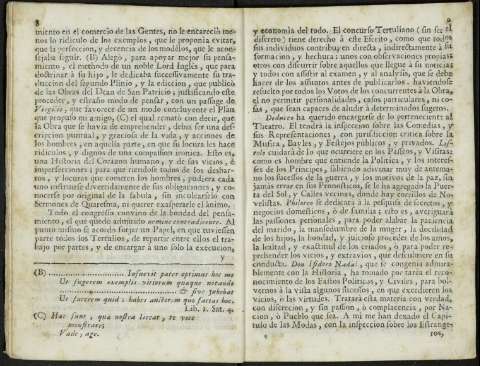 8
miento en el comercio de las Gentes, no le encareciò me-
nos lo ridiculo de los exemplos, que le proponia evitar,
que la perfeccion, y decencia de los modelos, que le acon-
sejaba seguir. (B) Alegò, para apoyar mejor su pensa-
miento, el methodo de un noble Lord Inglès, que para
doctrinar à su hijo, le dedicaba successivamente su tra-
duccion del segundo Plinio, y la edicion, que publicò
de las Obras del Dean de San Patricio; justificando este
proceder, y estraño modo de pensar, con un passage de
Virgilio, que favorece de un modo concluyente el Plan
que propuso mi amigo, (C) el qual rematò con decir, que
la Obra que se havia de emprender, debia ser una des-
cripcion puntual, y graciosa de la vida, y acciones de
los hombres, en aquella parte, en que su locura les hace
ridiculos, y dignos de una compassion ironica. Esto es,
una Historia del Corazon humano, y de sus vicios, è
imperfecciones; para que riendose todos de los desbar-
ros, y locuras que cometen los hombres, pudiera cada
uno instruirse divertidamente de sus obligaciones, y co-
nocerse por original de la fabula, sin encularselo con
Sermones de Quaresma, ni querer exasperarle el animo.
Todo el congresso convino de la bondad del pensa-
miento, el que quedò admitido nemine contradicente. Al
punto mismo se acordò forjar un Papel, en que tuviessen
parte todos los Tertulios, de repartir entre ellos el tra-
bajo por partes, y de encargar à uno solo la execucion,
y
(B) ........................ Insuevit pater optimus hoc me
Ut fugerem exemplis vitiorum quæque notando
........................ & sive jubebat
Ut facerem quid: habes auctorem quo facias hoc.
Lib. 1. Sat. 4.
(C) Hac sunt, qua nostra liceat, te voce
monstrare;
Vade, age.
9
y economia del todo. El concurso Tertuliano (sin ser el
discreto) tiene derecho à este Escrito, como que todos
sus individuos contribuyen directa, indirectamente à su
formacion, y hechura; unos con observaciones propias,
otros con discurrir sobre aquellas que llegue à su noticia,
y todos con assistir al examen, y al analysis, que se debe
hacer de los assuntos antes de publicarlos: haviendose
resuelto por todos los Votos de los concurrentes à la Obra,
el no permitir personalidades, casos particulares, ni co-
sas, que sean capaces de aludir à determinados sugetos.
Dodnico ha querido encargarse de lo perteneciente al
Theatro. El tendrà la inspeccion sobre las Comedias, y
sus Representaciones, con jurisdiccion critica sobre la
Musica, Bayles, y Festejos publicos, y privados.
cuidarà de lo que ocurriere en los Passeos, y Visitas;
como es hombre que entiende la Politica, y los interes-
ses de los Principes, sabiendo adivinar muy de antema-
no los sucessos de la guerra, y los motivos de la paz, sin
jamàs errar en sus Pronosticos, se le ha agregado la Puer-
ta del Sol, y Calles vecinas, donde hay corrillos de No-
velistas. Philarco se dedicarà à la pesquisa de secretos, y
negocios domesticos, ò de familia; esto es, averiguarà
las passiones personales, para poder alabar la paciencia
del marido, la mansedumbre de la muger, la docilidad
de los hijos, la bondad, y juicioso proceder de los amos,
la lealtad, y exactitud de los criados, ò para poder re-
prehender los vicios, y extravios, que descubriesse en su
conducta. Don Isidoro Nadal, que se congenia admira-
blemente con la Historia, ha tomado por tarèa el reco-
nocimiento de los Fastos Politicos, y Civiles, en bolver-
los à la vista en algunos sucessos, en que excedieren los
vicios, ò las virtudes. Tratarà esta materia con verdad,
con discrecion, y sin passion, ò complacencia, por Na-
cion, ò Pueblo que sea. A mì me han dexado el Capi-
tulo de las Modas, con la inspeccion sobre los Estrange-
ros,